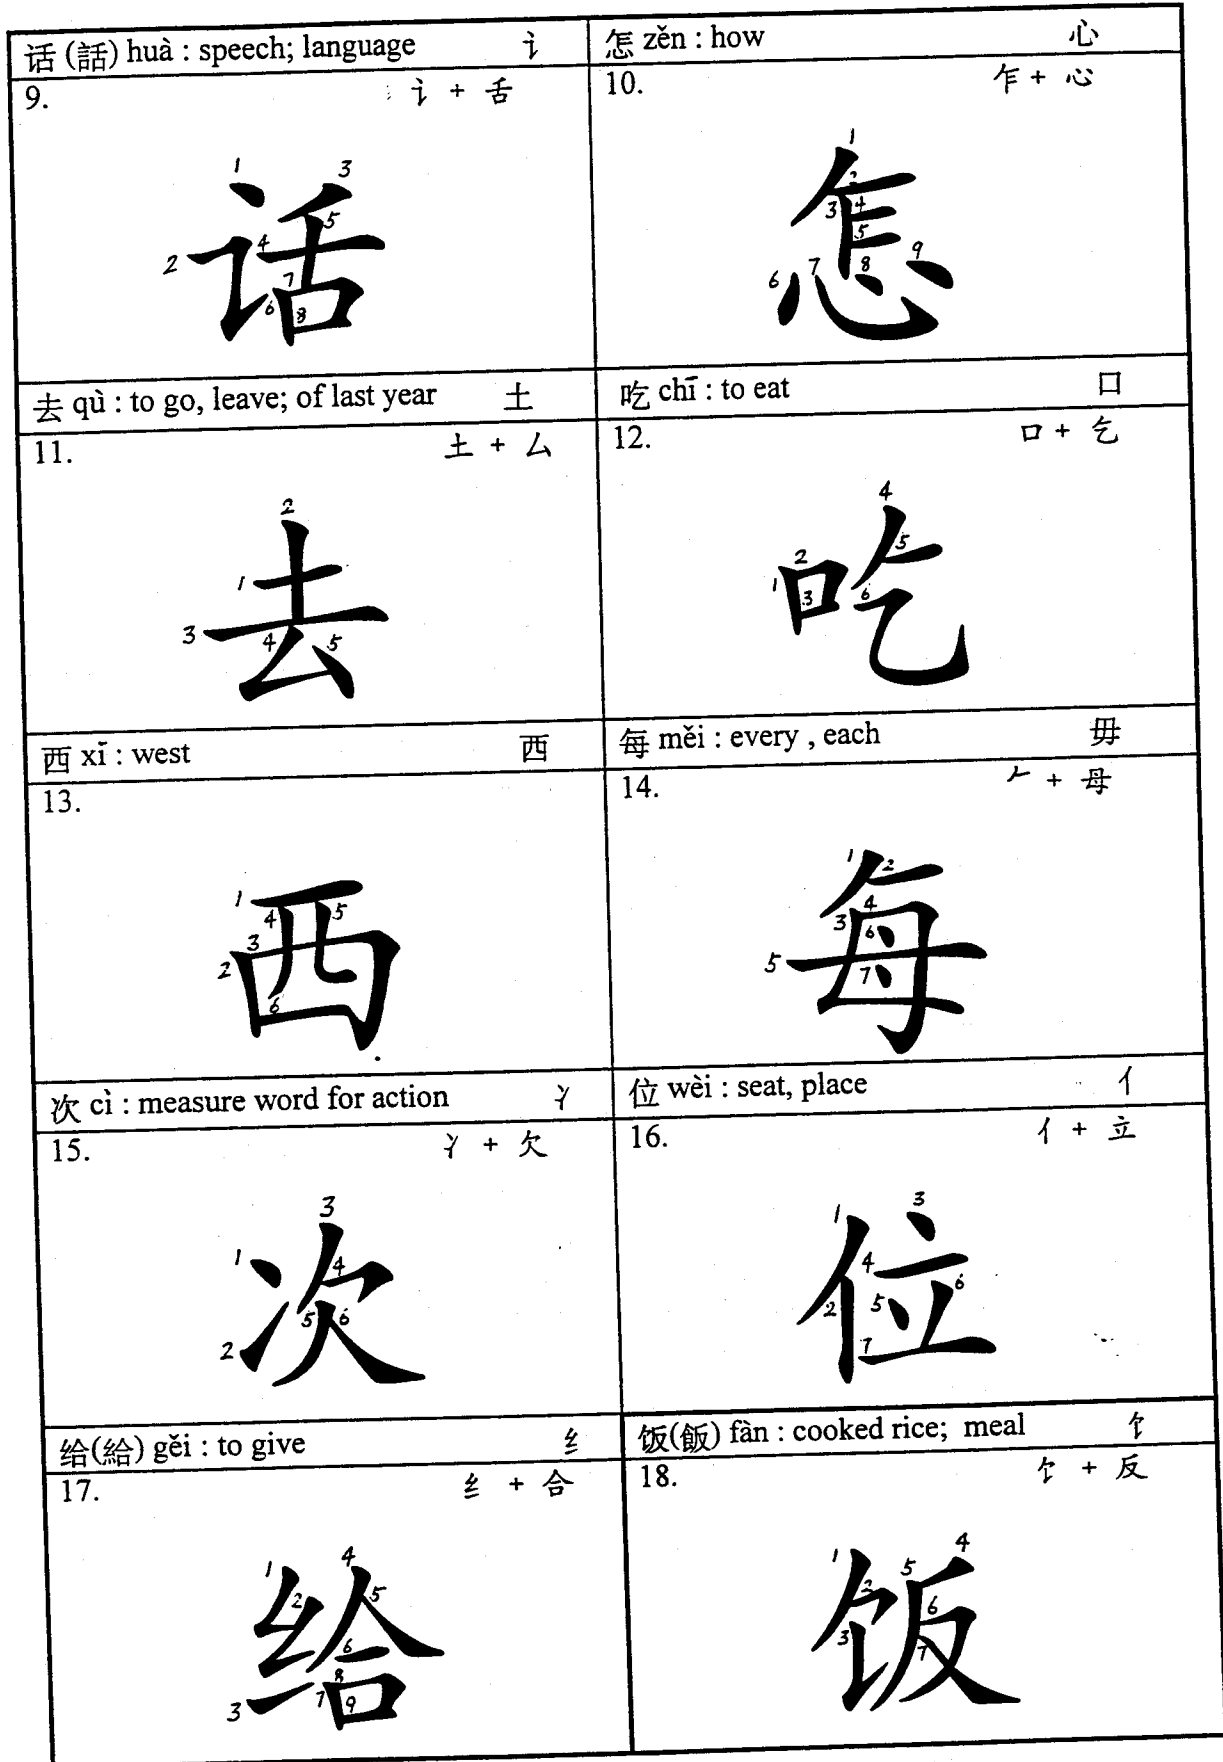 话 (話) huà : speech; language 讠
9. 讠 + 舌
1 2 3 4 5 6 7 8
话
怎 zěn : how 心
10. 乍 + 心
1 2 3 4 5 6 7 8 9
怎
去 qù : to go, leave; of last year 土
11. 土 + 厶
1 2 3 4 5
去
吃 chī : to eat 口
12. 口 + 乞
1 2 3 4 5 6
吃
西 xī : west 西
13.
1 2 3 4 5 6
西
每 měi : every , each 毋
14. 𠂉 + 母
1 2 3 4 5 6 7
每
次 cì : measure word for action 冫
15. 冫 + 欠
1 2 3 4 5 6
次
位 wèi : seat, place 亻
16. 亻 + 立
1 2 3 4 5 6 7
位
给(給) gěi : to give 纟
17. 纟 + 合
1 2 3 4 5 6 7 8 9
给
饭(飯) fàn : cooked rice; meal 饣
18. 饣 + 反
1 2 3 4 5 6 7
饭